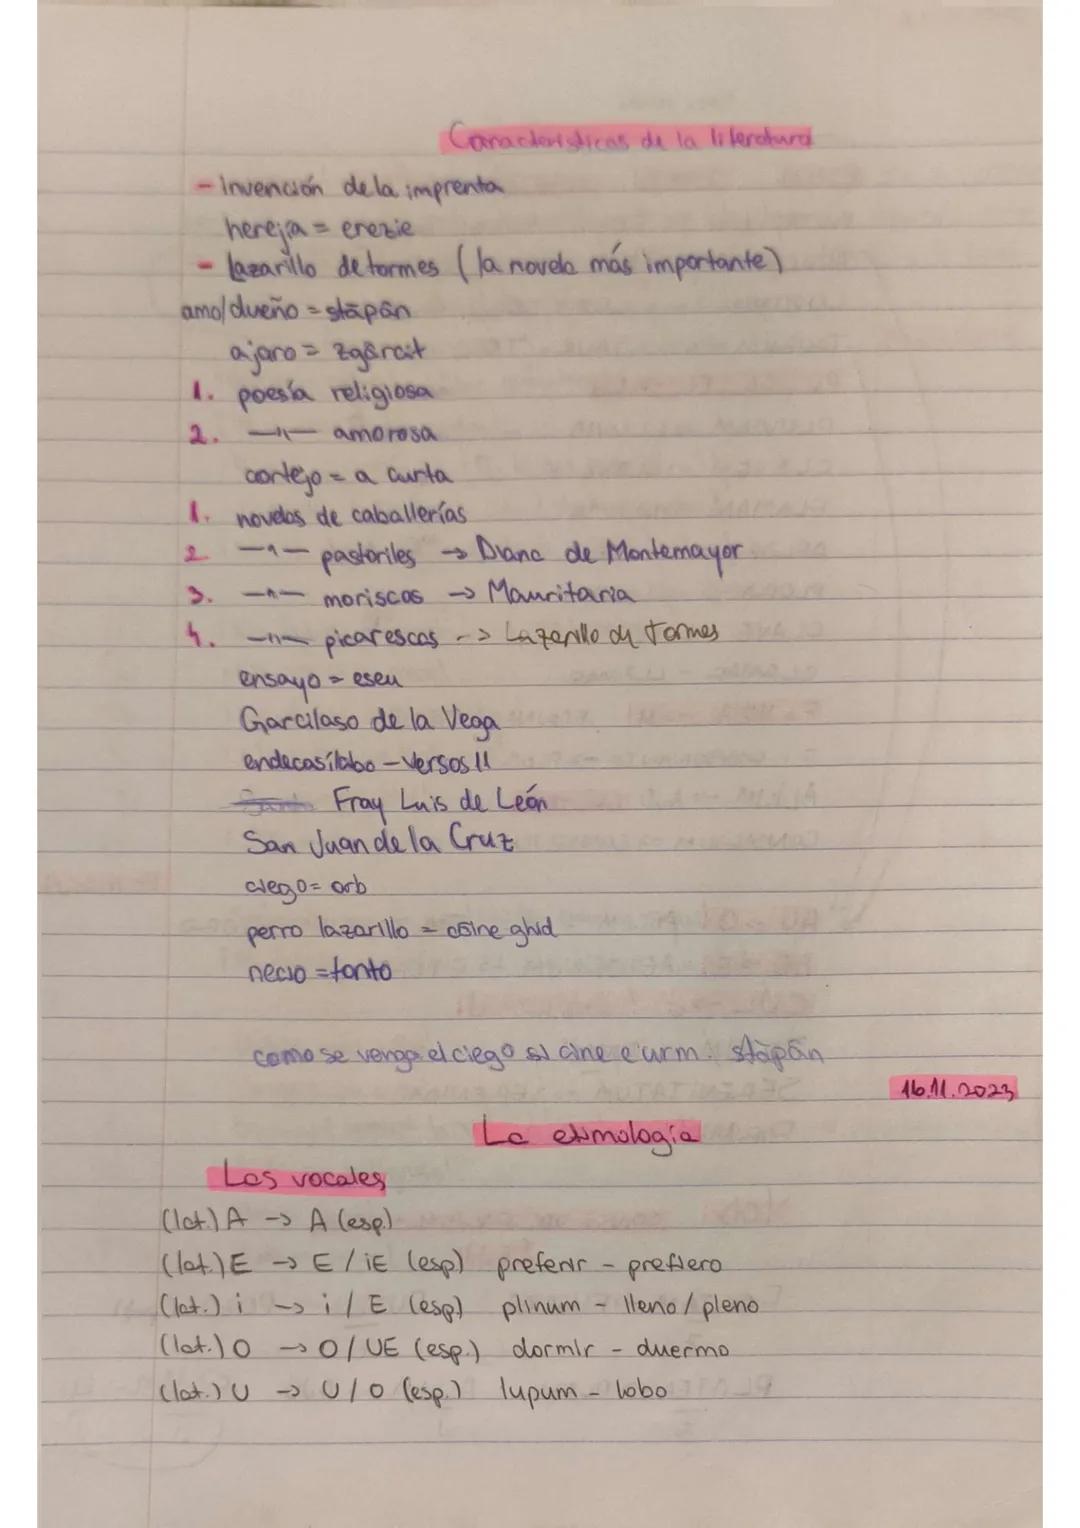 Caracteristicas de la literatura
- Invención de la imprenta
herejía = erezie
- lazarillo de tormes (la novela más importante)
amo/dueño = stăpân
ajaro = zgârcit
1. poesía religiosa
2. —"— amorosa
cortejo = a curta
1. novelas de caballerías
2 —"— pastoriles → Diana de Montemayor
3. —"— moriscas → Mauritaria
4. —"— picarescas -> Lazarillo de Tormes
ensayo = eseu
Garcilaso de la Vega
endecasílabo - versos 11
Fray Luis de León
San Juan de la Cruz
ciego = orb
perro lazarillo = câine ghid
necio = tonto
como se venga el ciego si cine e urm. stăpân
16.11.2023
La etimología
Las vocales
(lat.) A -> A (esp.)
(lat.) E -> E / iE (esp) preferir - prefiero
(lat.) i -> i / E (esp.) plinum - lleno / pleno
(lat.) O -> O / UE (esp.) dormir - duermo
(lat.) U -> U / O (esp.) lupum - lobo